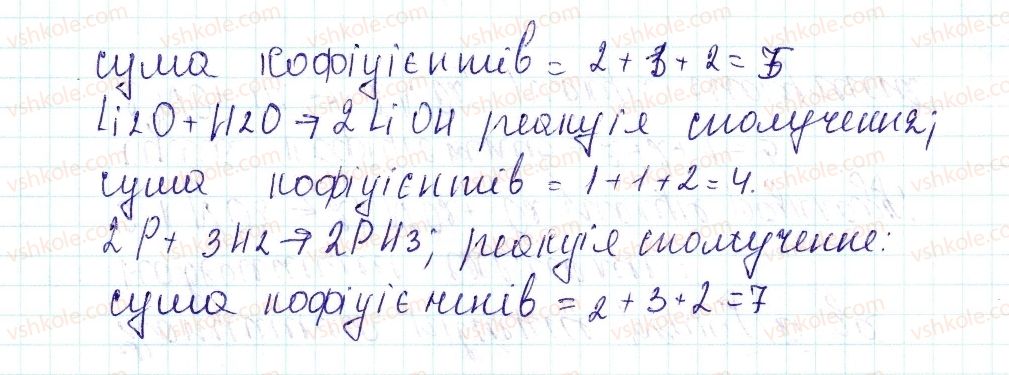 сума кофіцієнтів = 2 + 1 + 2 = 5
Li2O + H2O → 2LiOH реакція сполучення;
сума кофіцієнтів = 1 + 1 + 2 = 4.
2P + 3H2 → 2PH3; реакція сполученне:
сума кофіцієнтів = 2 + 3 + 2 = 7
vshkole.com